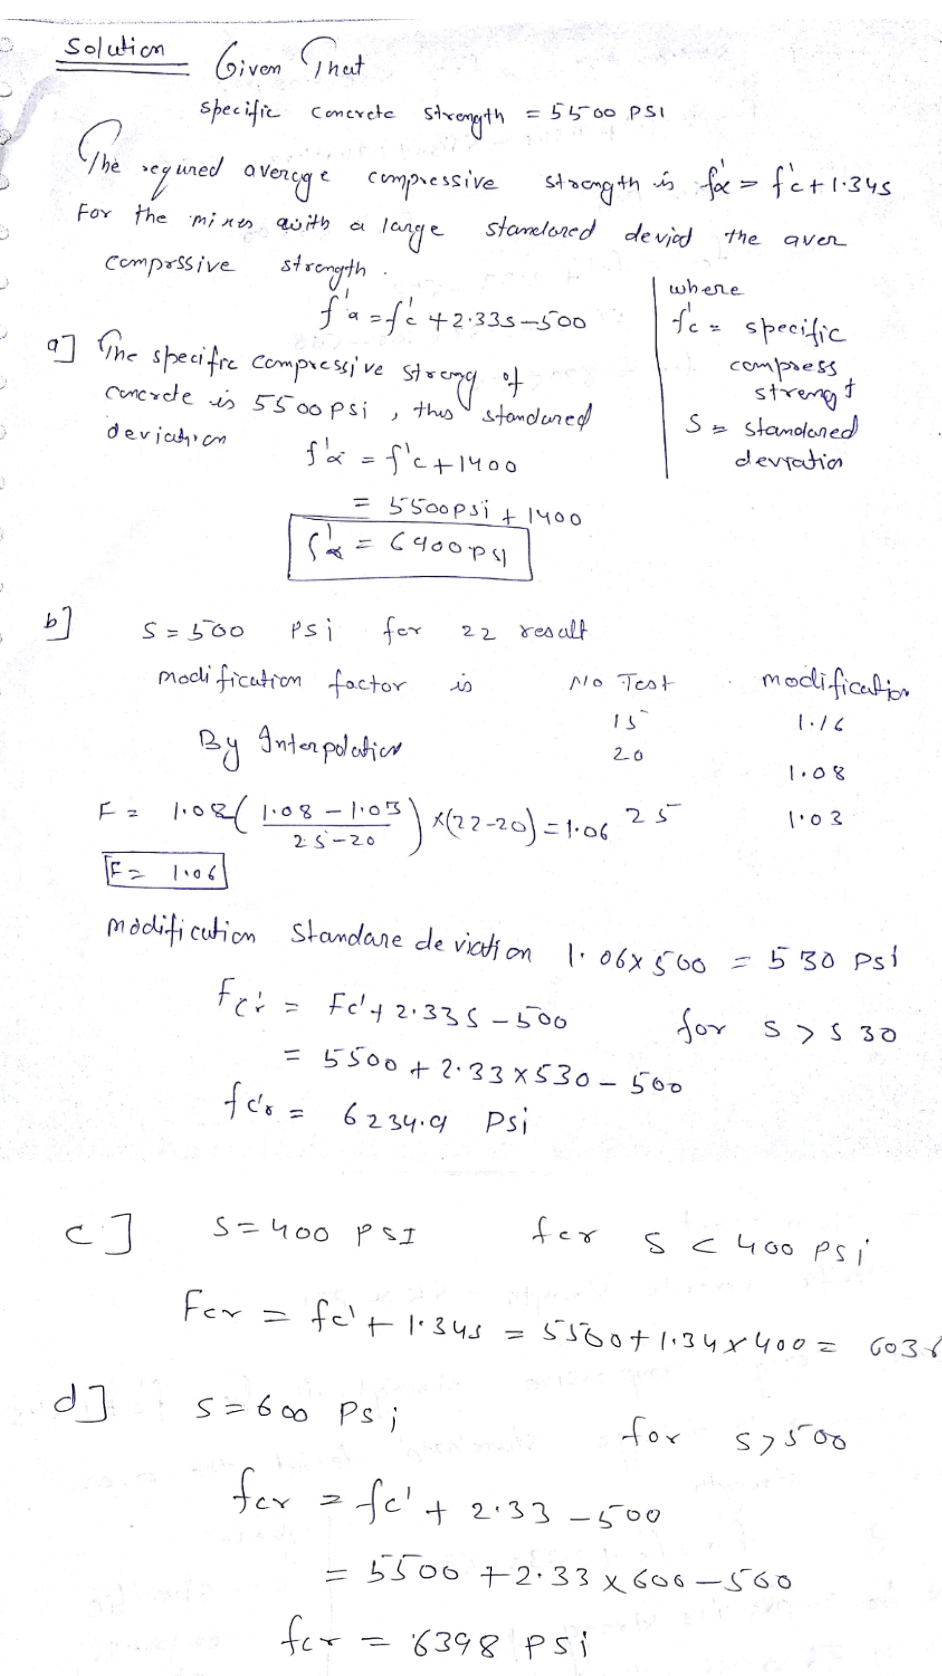 Solution
Given That
specific concrete strength = 5500 PSI
The requred average compressive strength is f'cr = f'c + 1.34s
For the mixes with a large standared deviod the aver
comprssive strength.
f'a = f'c + 2.33s - 500
where
f'c = specific
compress
strengt
S = standared
deviation
a] The specifrc compressive streng of
concrete is 5500 psi , this standared
deviation
f'cr = f'c + 1400
= 5500psi + 1400
f'cr = 6900psi
b] S = 500 psi for 22 result
modification factor is
No Test modification
15 1.16
By Interpolation
20 1.08
F = 1.08 ( 1.08 - 1.03 / 25 - 20 ) x (22-20) = 1.06
25 1.03
F = 1.06
modification Standare deviation 1.06 x 500 = 530 Psi
Fcr = Fc' + 2.33S - 500 for s > 530
= 5500 + 2.33 x 530 - 500
fc'r = 6234.9 Psi
c] S = 400 PSI for s < 400 psi
Fcr = fc' + 1.34s = 5500 + 1.34 x 400 = 6036
d] S = 600 Psi
for s > 500
fcr = fc' + 2.33 - 500
= 5500 + 2.33 x 600 - 500
fcr = 6398 psi